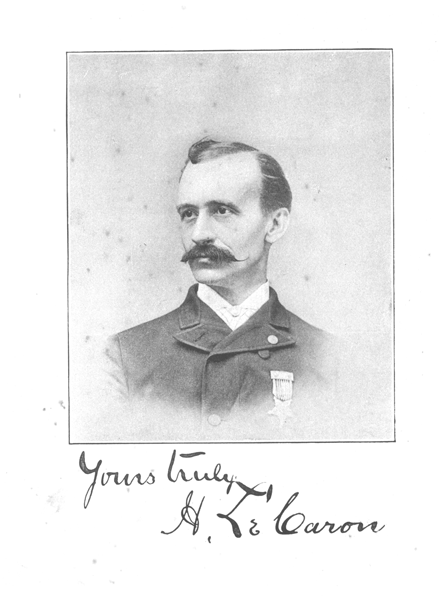 Yours truly,
H. Le Caron